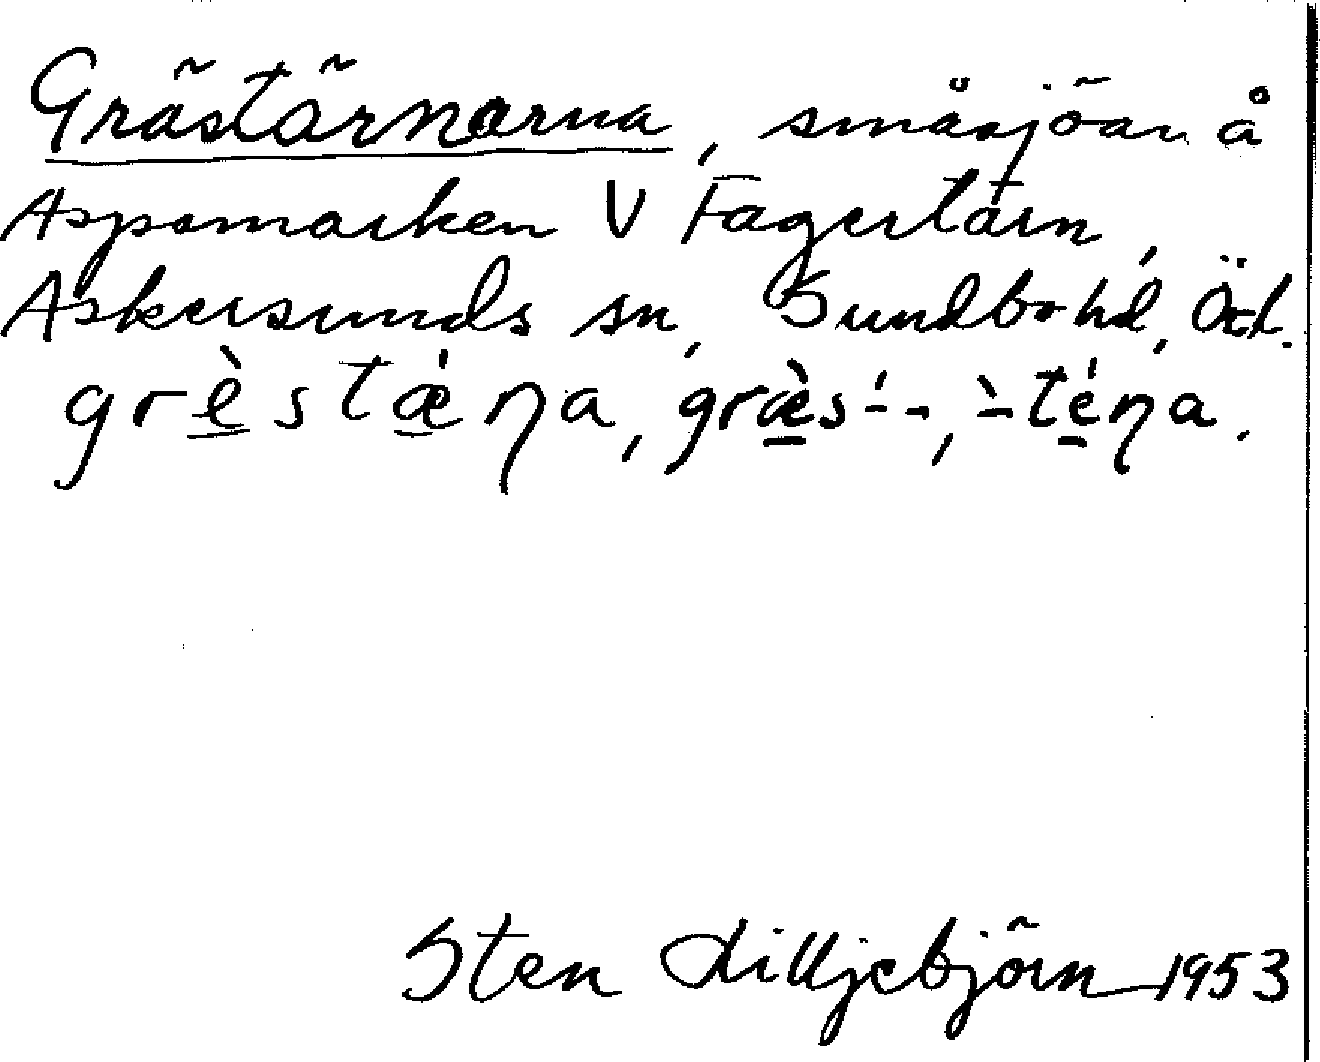 Grästärnarna, småsjöar å
Aspamarken V Fagertärn,
Askersunds sn, Sundbo hd, Ötl.
grès̱tǽṇa, græ̀s-́-, -̀téṇa.
Sten Lilljebjörn 1953